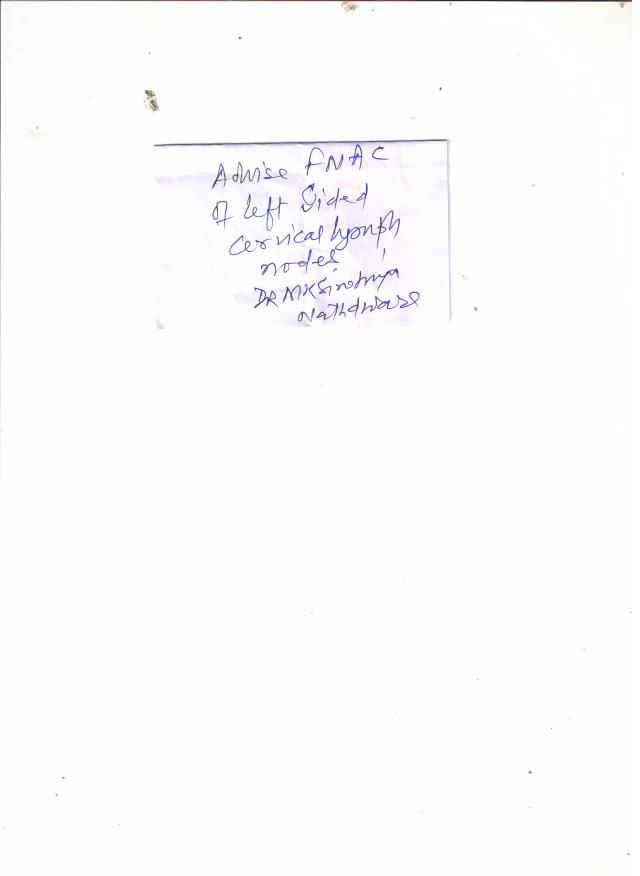 Advise FNAC
of left Sided
cervical lymph
nodes
DR MK Sirohiya
Nathdwara